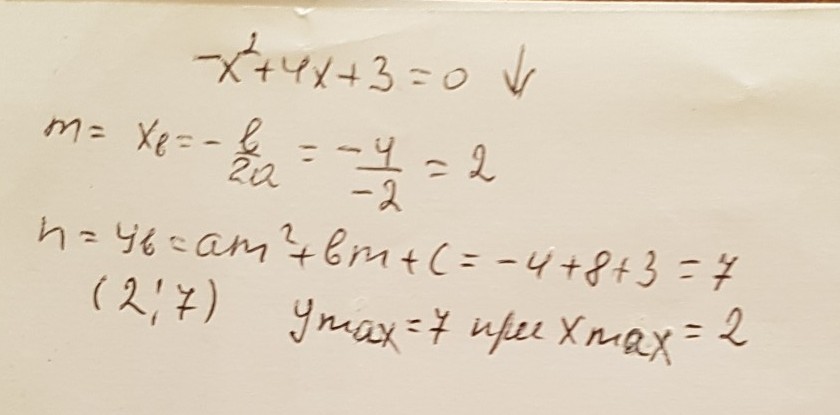 -x²+4x+3=0 ↓
m= xв=-в/2a = -4/-2 = 2
n=yв=am²+вm+c=-4+8+3=7
(2;7) ymax=7 при xmax=2